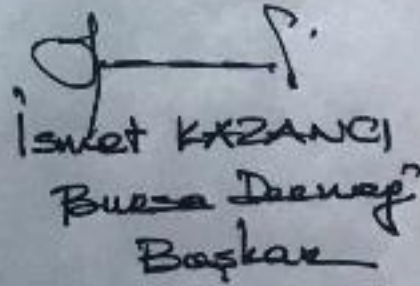 İsmet KAZANCI
Bursa Derneği
Başkanı